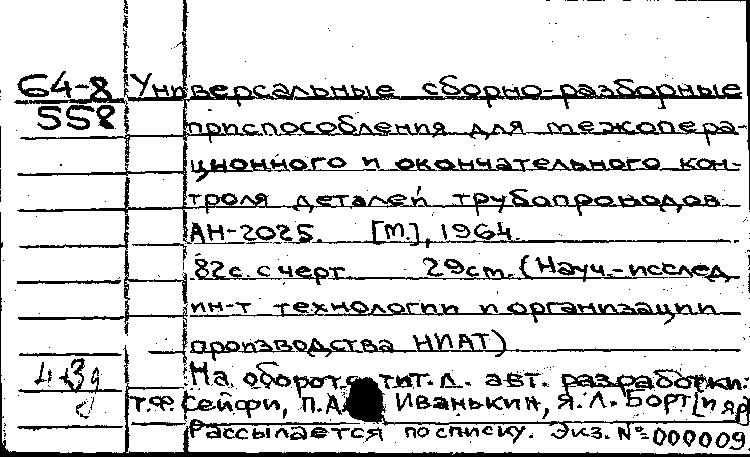 64-8 Универсальные сборно-разборные
558 приспособления для межопера-
ционного и окончательного кон-
троля деталей трубопроводов
АН-2025. [М.], 1964.
82с. с черт. 29см. (Науч.-исслед.
ин-т технологии и организации
производства НИАТ)
На обороте тит. л. авт. разработки:
Т.Ф. Сейфи, П.А. Иванькин, Я.Л. Борт[и др]
Рассылается по списку. Экз. № 000009